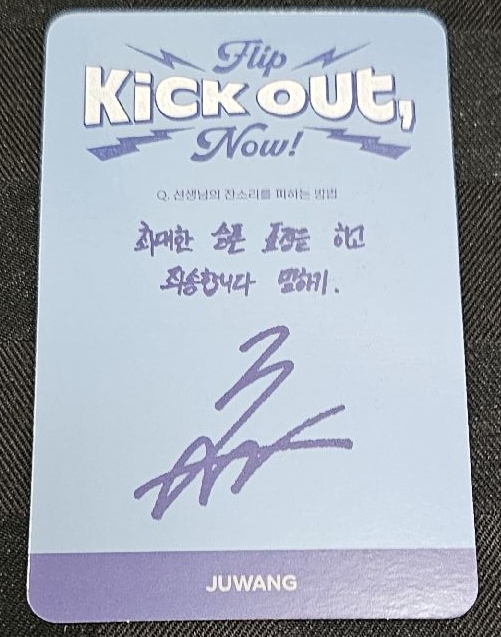 Flip
KiCK OUt,
Now!
Q. 선생님의 잔소리를 피하는 방법
최대한 슬픈 표정을 하고
죄송합니다 말하기.
JUWANG